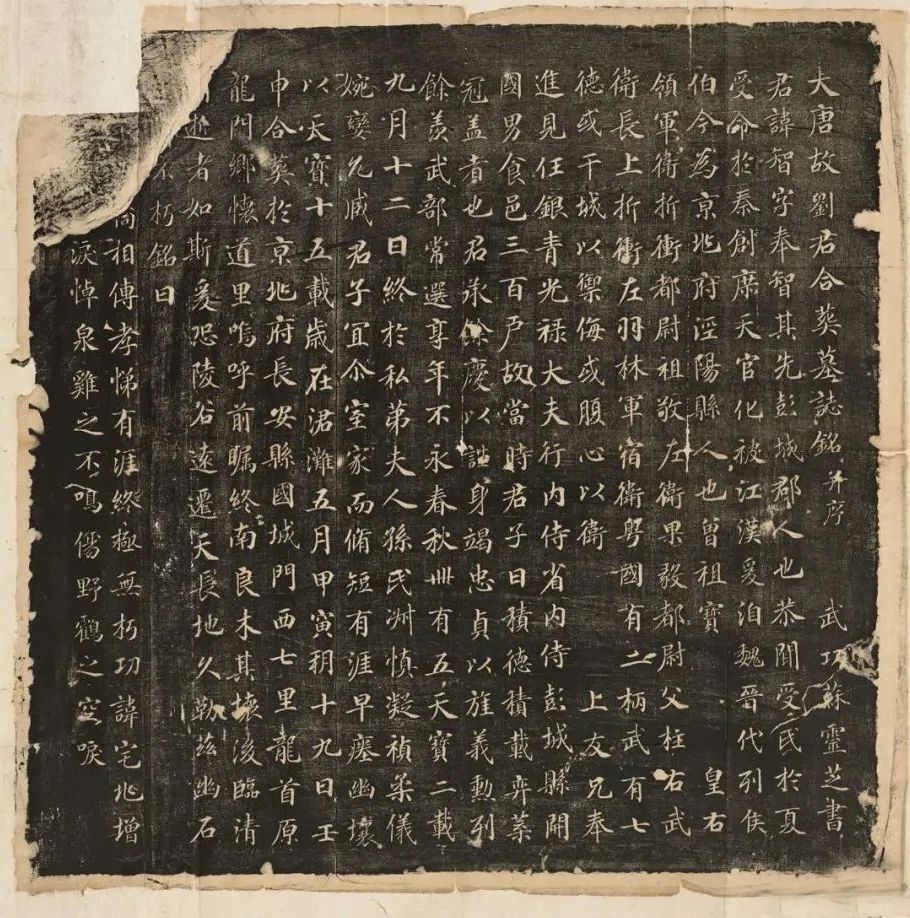 大唐故劉君合葬墓誌銘并序 武功蘇靈芝書
君諱智字奉智其先彭城郡人也恭聞受氏於夏
受命於秦創席天官化被江漢爰洎魏晉代列侯
伯今為京兆府涇陽縣人也曾祖寶 皇右
領軍衛折衝都尉祖敬左衛果毅都尉父柱右武
衛長上折衝左羽林軍宿衛粵國有二柄武有七
德或干城以禦侮或腹心以衛 上友兄奉
進見任銀青光祿大夫行內侍省內侍彭城縣開
國男食邑三百戶故當時君子曰積德積載弈葉
冠盖者也君承餘慶以謹身竭忠貞以旌義勳列
餘羨武部常選享年不永春秋卌有五天寶二載
九月十二日終於私第夫人孫氏淑慎凝禎柔儀
婉孌允臧君子宜尒室家而脩短有涯早瘞幽壤
以天寶十五載歲在涒灘五月甲寅朔十九日壬
申合葬於京兆府長安縣國城門西七里龍首原
龍門鄉懷道里嗚呼前瞩終南良木其壞後臨清
逝者如斯爰恐陵谷遠遷天長地久勒茲幽石
不朽銘曰
相傳孝悌有涯終極無朽功諱宅兆增
淚悼泉雞之不鳴傷野鶴之空唳